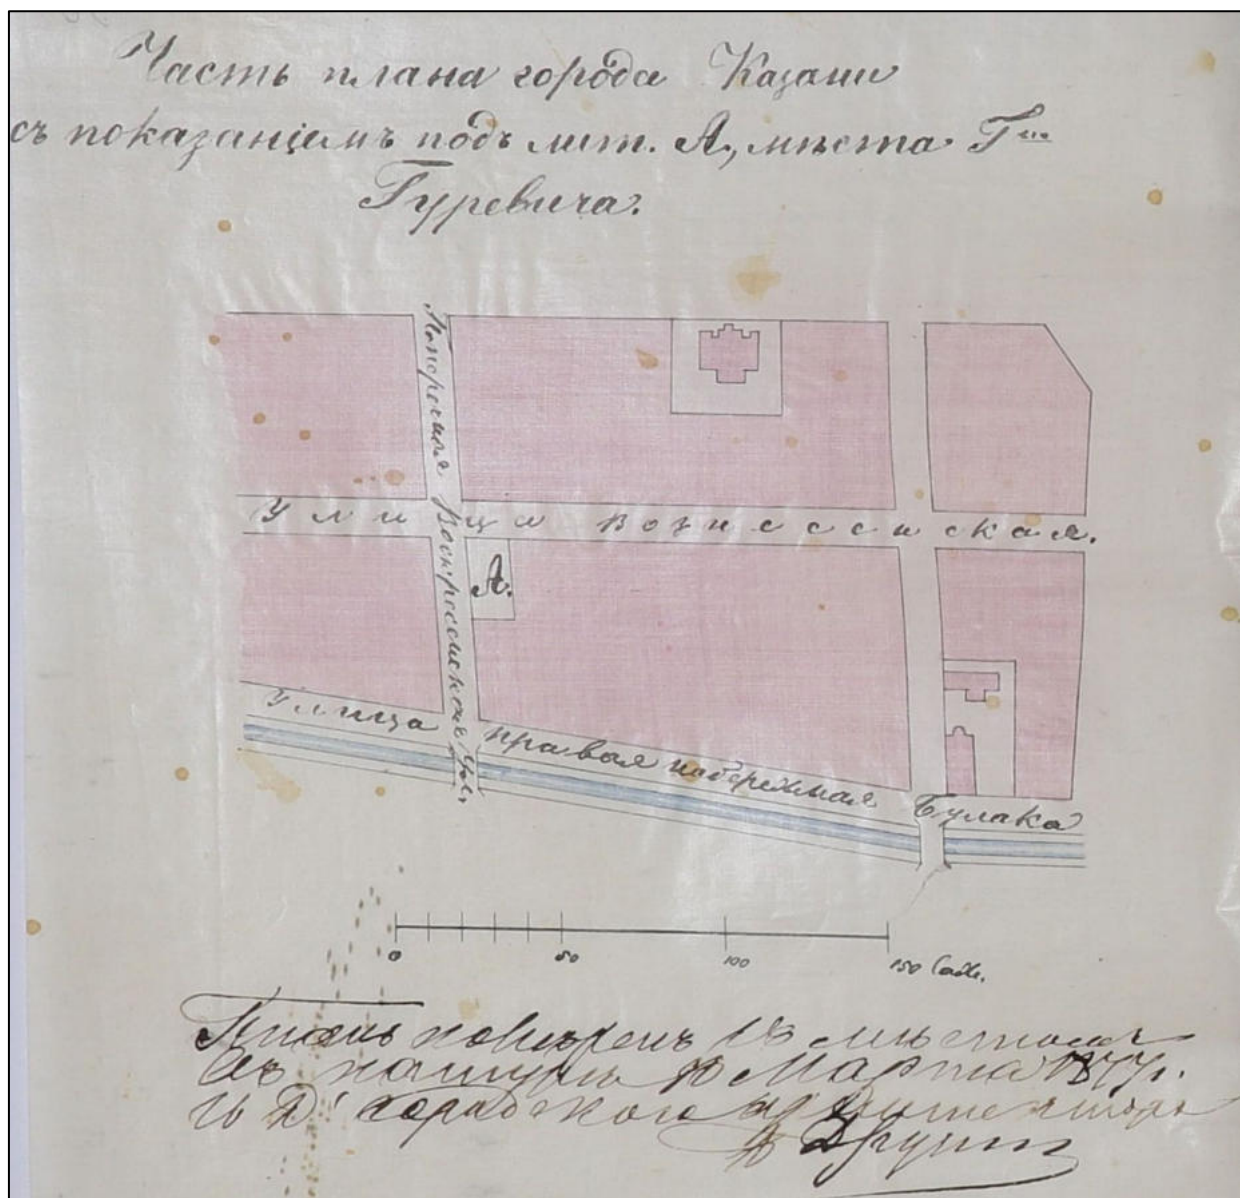 Часть плана города Казани
съ показаніемъ подъ лит. А, мѣста Г<sup>на</sup>
Гуревича.
Поперечная Воскресенской ул.
Улица Вознесенская.
А.
Улица правая набережная Булака
0 50 100 150 Саж.
Планъ повѣренъ съ мѣстомъ
въ натурѣ Марта 1877г.
И Д городского архитектора